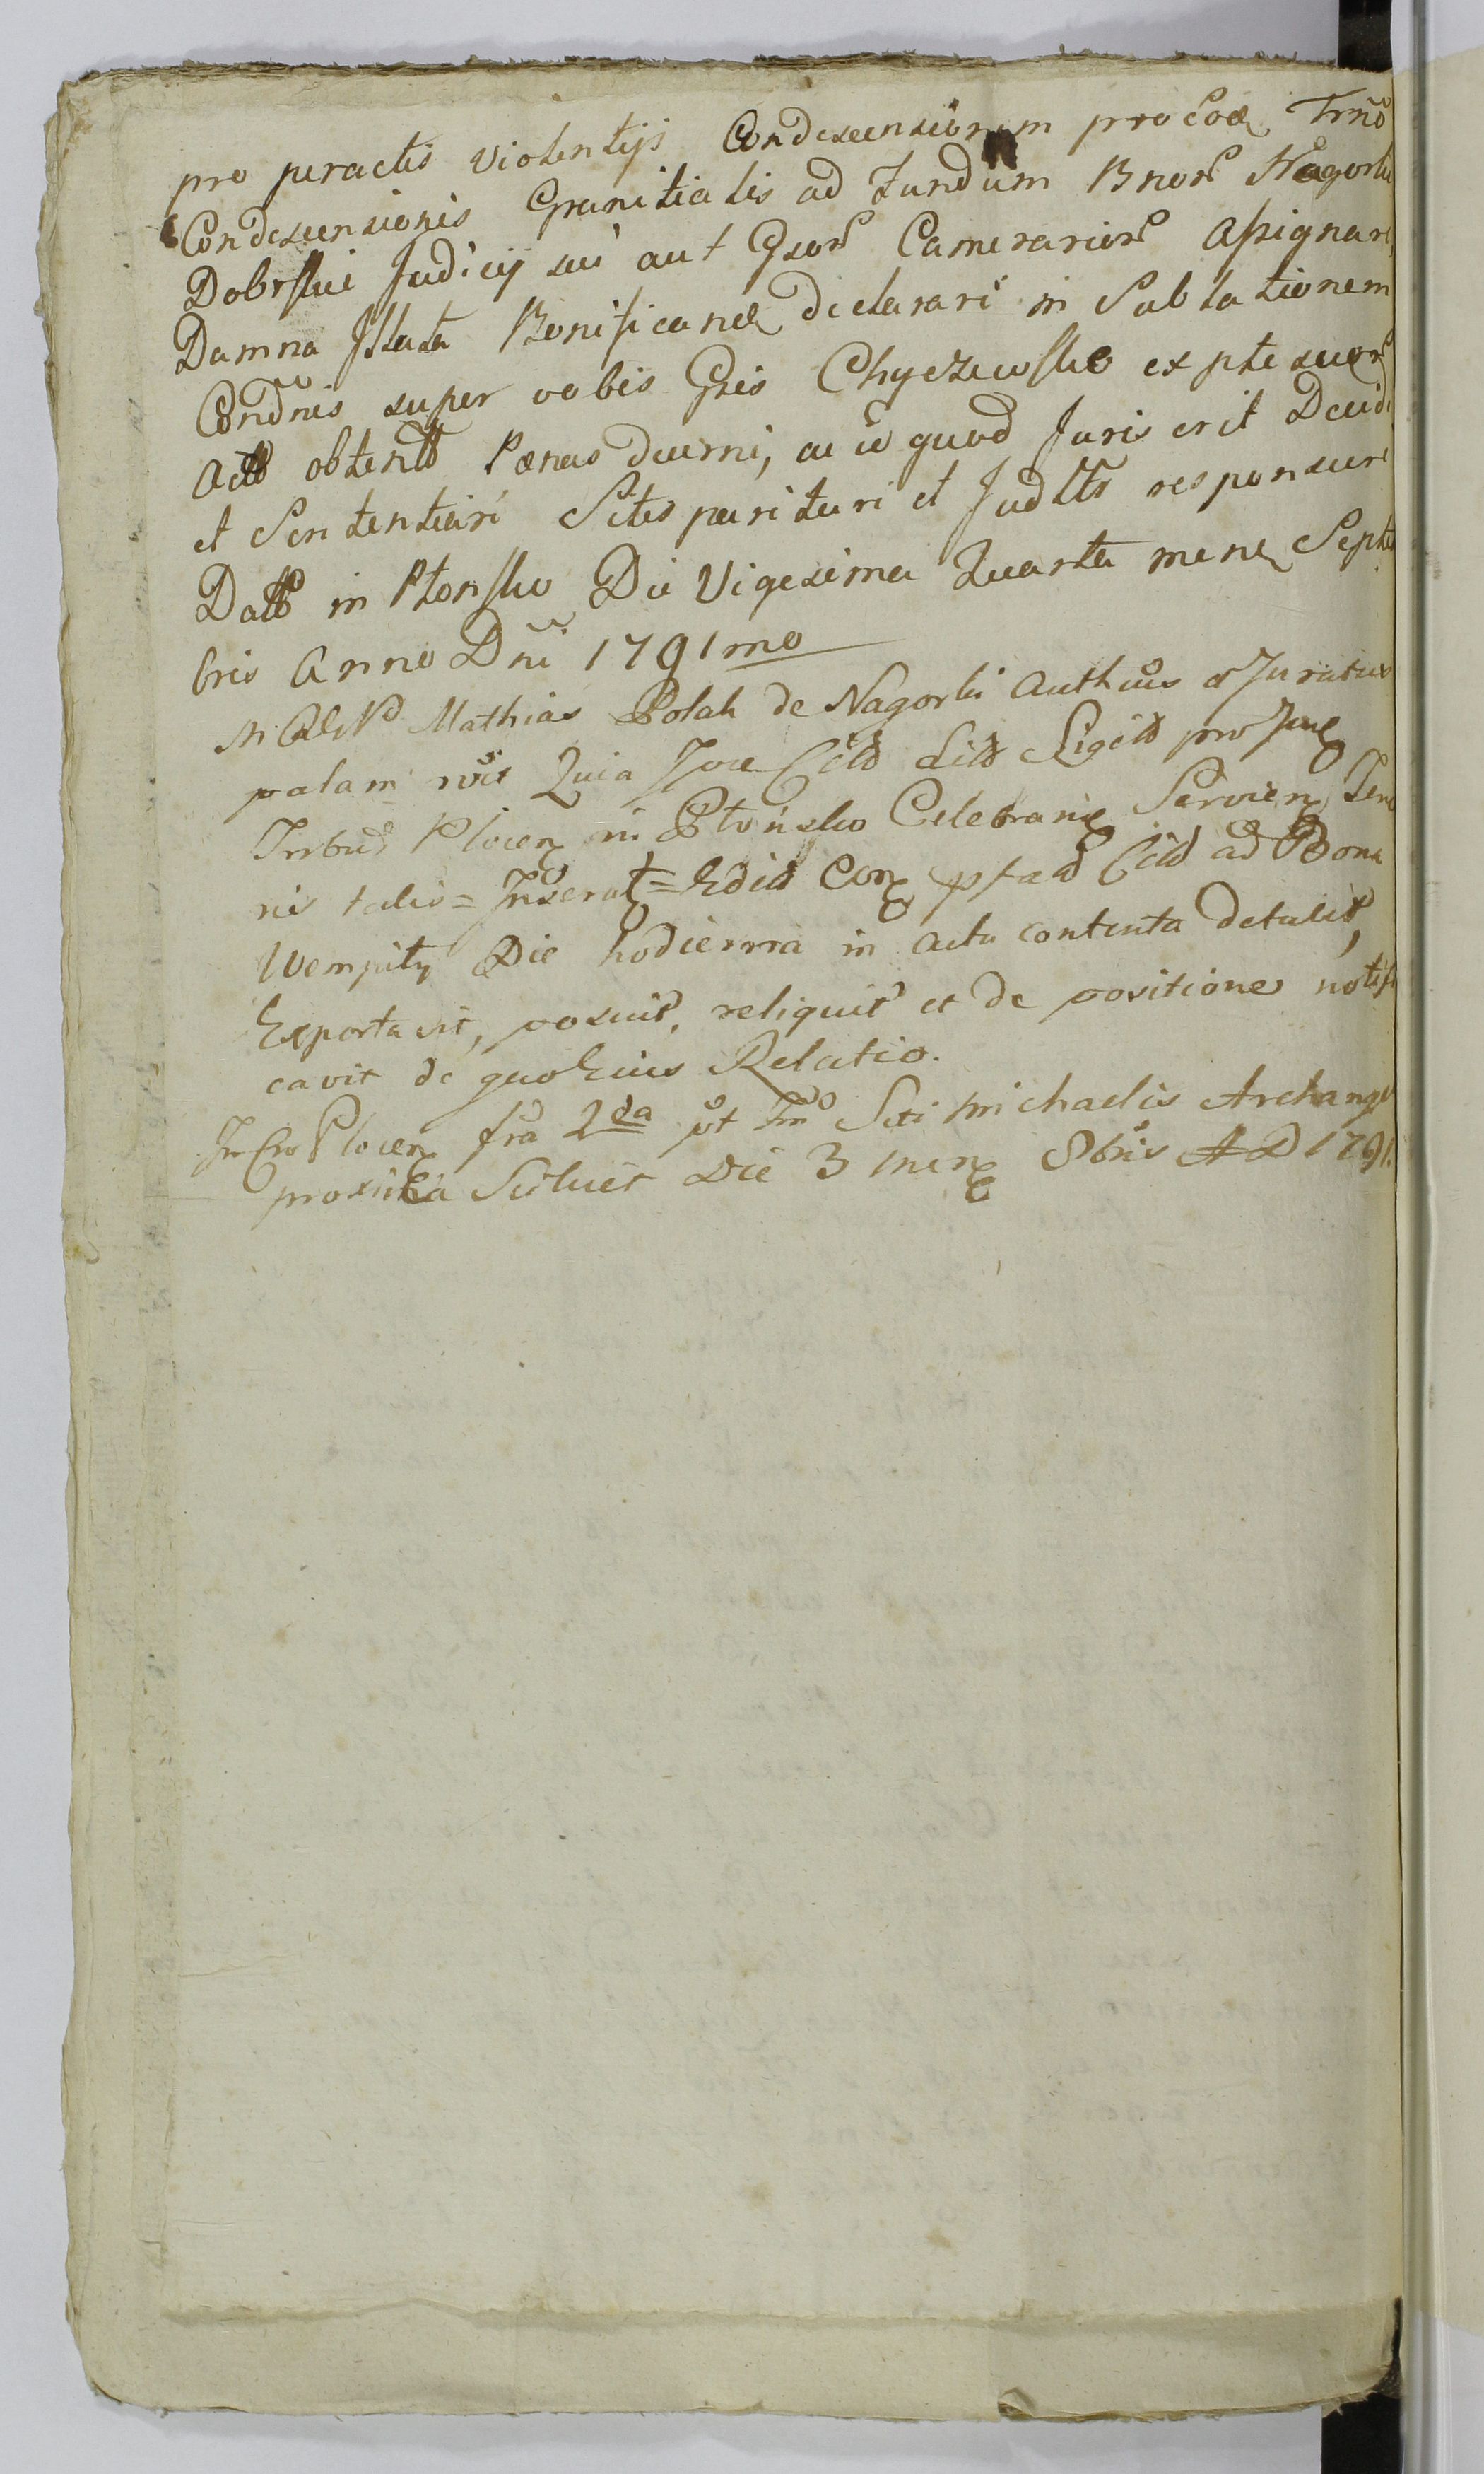 pro peractis violentijs Condescensionem pro Trno
Condescensionis Granitialis ad Fundum Bnor Nagorki
Dobrskie Judicij sui aut Gsor Camerarior assignari
Damna Illata Bonificand declarari in Sublationem
Condnis super vobis Gsis Chyczewskie ex pte suor
Actto obtentto Pænas decerni, ac id quod Juris erit Decidi
et Sententiari Sitis parituri et Judltr responsuri
Datt in Płonsko Die Vigesima Quarta mens Septem
bris Anno Dni 1791mo
Mathias Polak de Nagorki Authcus et Juratus
palam Quia Citt Ligitt pro
Płocen in Płońsko Celebran Servien Teno
ris talis = Inserat = Con Citt ad Bona
Wempiły Die hodierna in actu contenta detulit,
Exportavit, posuit, reliquit et de positione notifi
cavit de quo Eius Relatio.
Płocen fra 2da pt Sti Michaelis Archangeli
proxima Scilicet Die 3 men 8bris AD 1791.